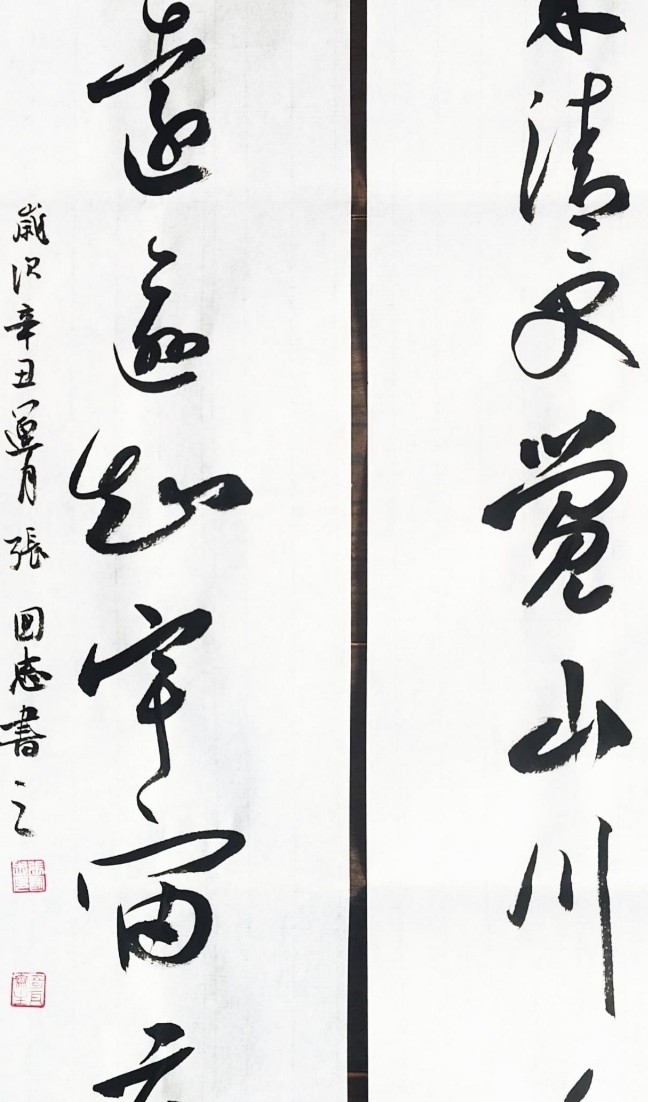 清更覺山川
遠逾知宇宙
歲次辛丑蓮月張国志書之